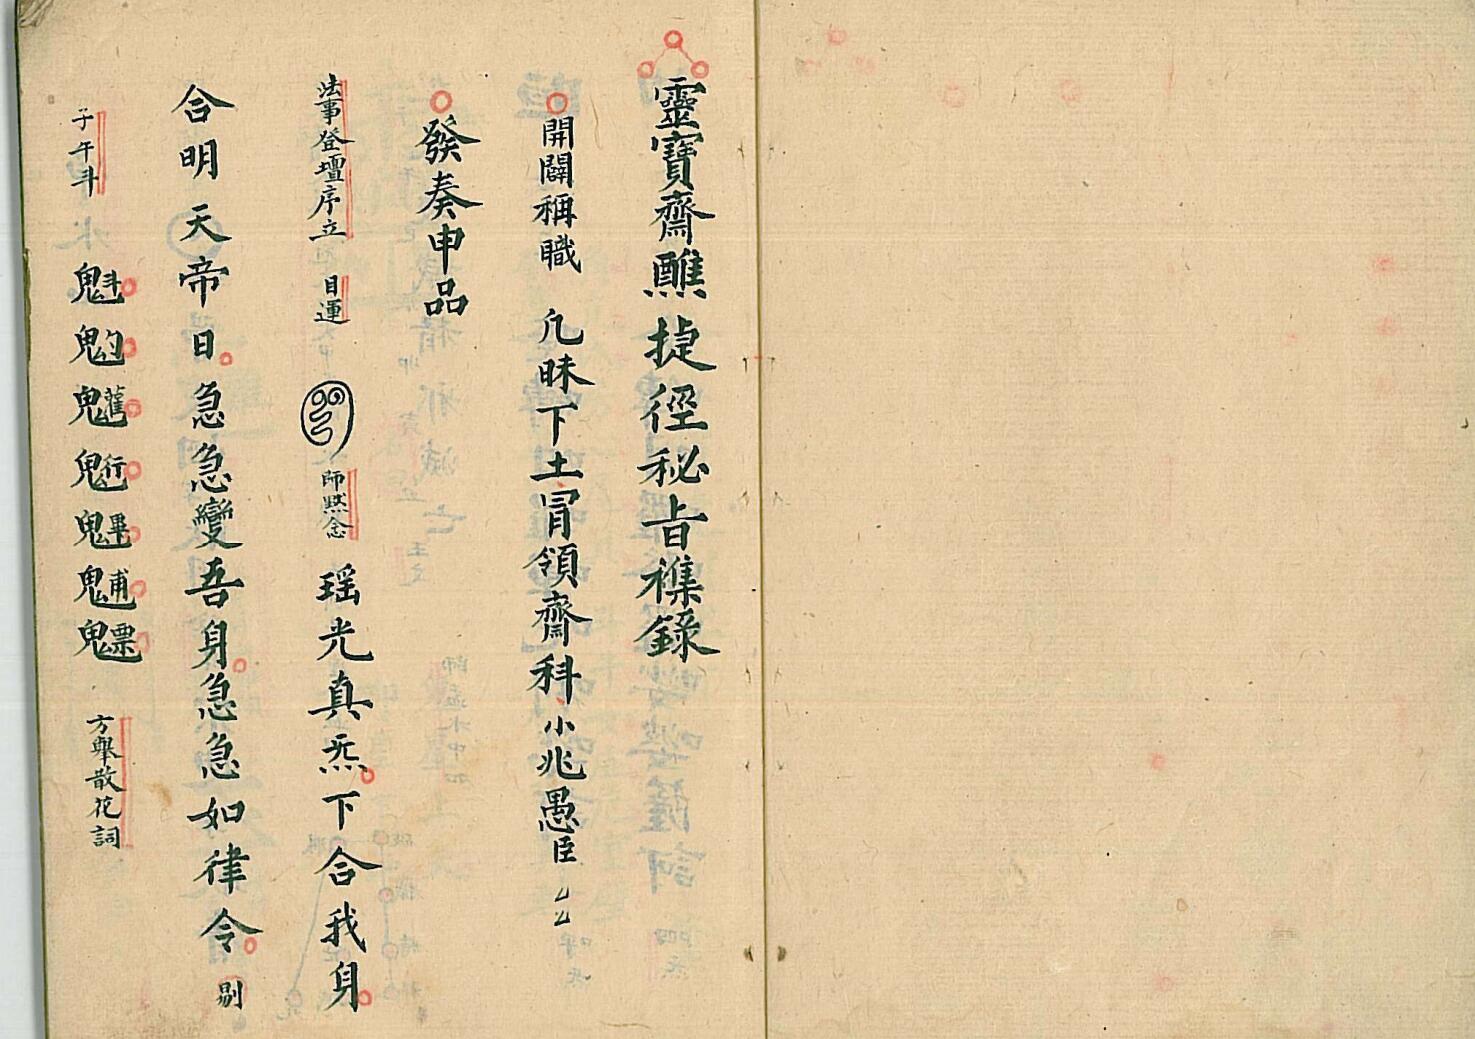 靈寶齋醮捷徑秘旨襍錄
開闢稱職 凢昧下土冐領齋科小兆愚臣厶厶
發奏申品
法事登壇序立 目運 師黙念 瑶光真炁下合我身
合明天帝日急急變吾身急急如律令 剔
子午斗 魁䰢魓魒 方舉散花詞